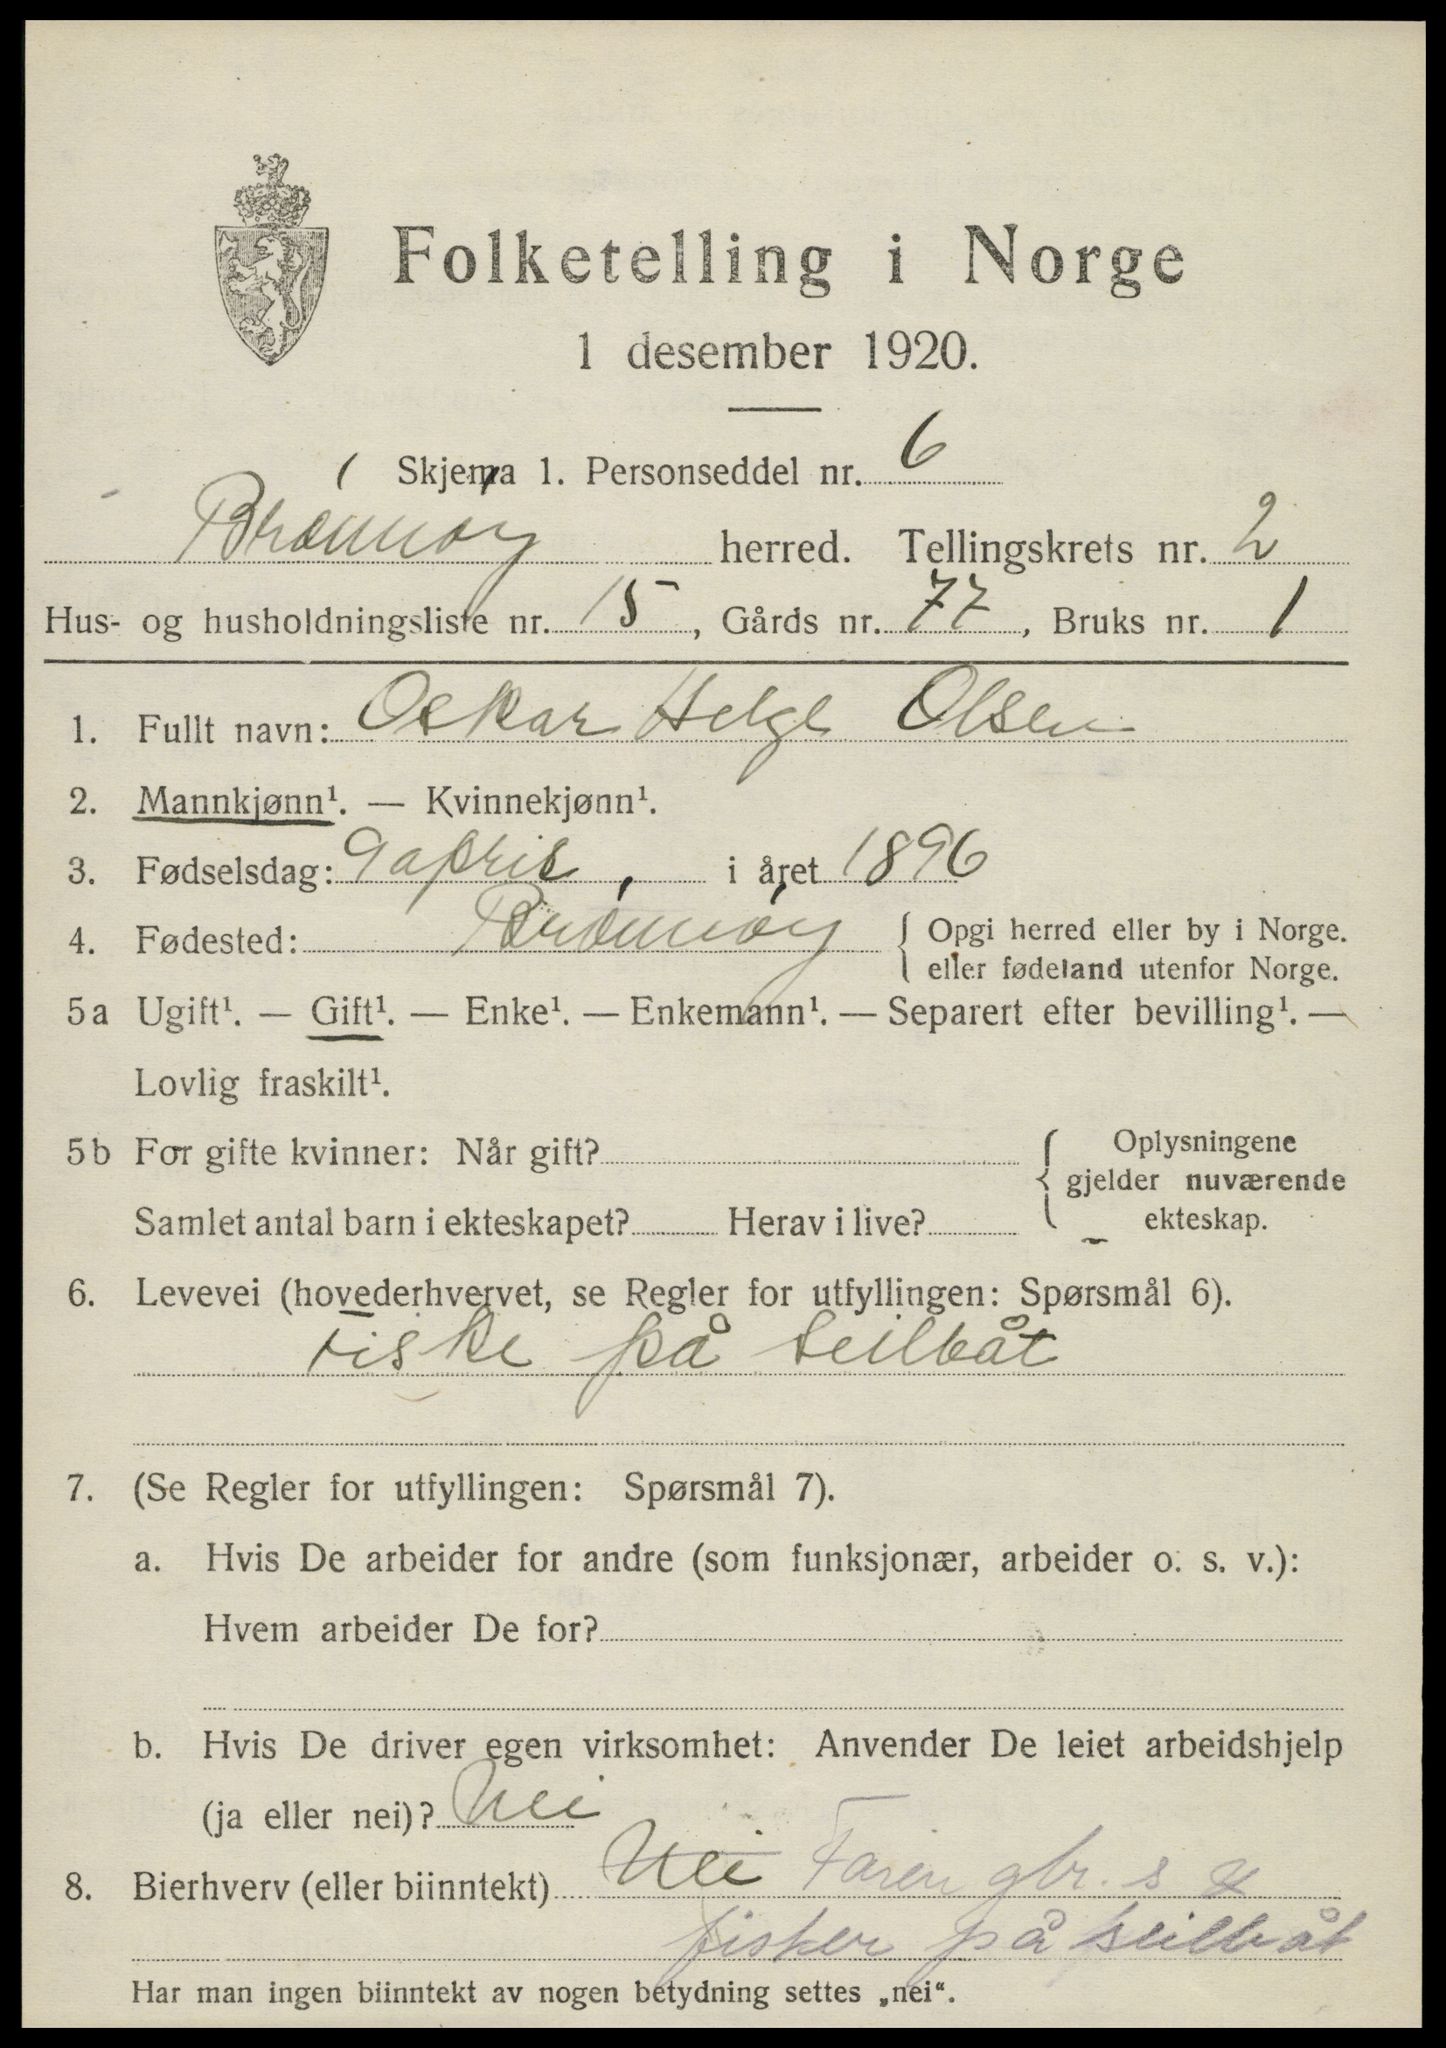 Folketelling i Norge
1 desember 1920.
Skjema 1. Personseddel nr. 6
Brønnøy herred. Tellingskrets nr. 2
Hus- og husholdningsliste nr. 15, Gårds nr. 77, Bruks nr. 1
1. Fullt navn: Oskar Helge Olsen
2. Mannkjønn¹. — Kvinnekjønn¹.
3. Fødselsdag: 9 april, i året 1896
4. Fødested: Brønnøy { Opgi herred eller by i Norge.
eller fødeland utenfor Norge.
5a Ugift¹. — Gift¹. — Enke¹. — Enkemann¹. — Separert efter bevilling¹. —
Lovlig fraskilt¹.
5b For gifte kvinner: Når gift? { Oplysningene
gjelder nuværende
Samlet antal barn i ekteskapet? Herav i live? ekteskap.
6. Levevei (hovederhvervet, se Regler for utfyllingen: Spørsmål 6).
Fiske på seilbåt
7. (Se Regler for utfyllingen: Spørsmål 7).
a. Hvis De arbeider for andre (som funksjonær, arbeider o. s. v.):
Hvem arbeider De for?
b. Hvis De driver egen virksomhet: Anvender De leiet arbeidshjelp
(ja eller nei)? Nei
8. Bierhverv (eller biinntekt) Nei Faren gbr. s &
fisker på seilbåt
Har man ingen biinntekt av nogen betydning settes „nei“.